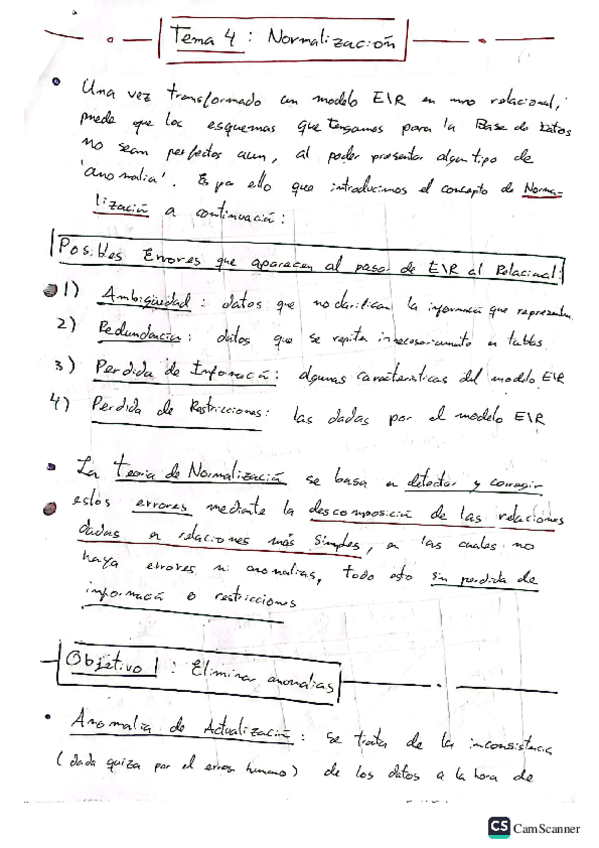 Tema 4 : Normalización
• Una vez transformado un modelo E\R en uno relacional,
puede que los esquemas que tengamos para la Base de Datos
no sean perfectos aun, al poder presentar algun tipo de
'anomalia'. Es por ello que introducimos el concepto de Norma-
lización a continuación :
Posibles Errores que aparecen al pasar de E\R al Relacional:
1) Ambigüedad : datos que no clarifican la información que representan
2) Redundancia : datos que se repiten innecesariamente en tablas
3) Perdida de Información : algunas caracteristicas del modelo E\R
4) Perdida de Restricciones : las dadas por el modelo E\R
• La teoria de Normalización se basa en detectar y corregir
estos errores mediante la descomposición de las relaciones
dadas en relaciones más simples, en las cuales no
haya errores ni anomalias, todo esto sin perdida de
información o restricciones
Objetivo 1 : Eliminar anomalias
• Anomalia de Actualización : se trata de la inconsistencia
(dada quiza por el error humano) de los datos a la hora de
CS CamScanner